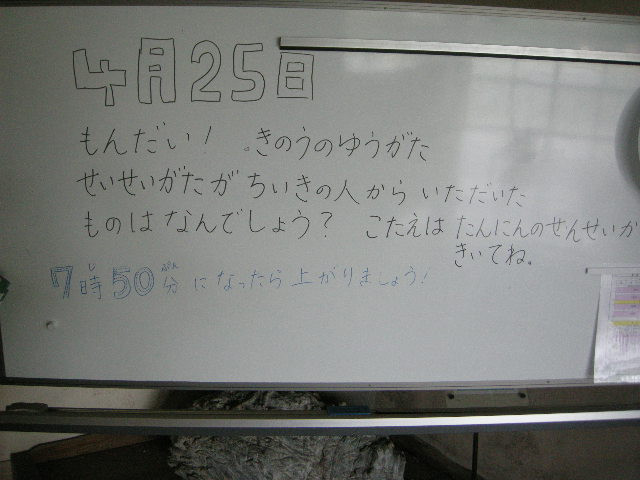 4月25日
もんだい! 。きのうのゆうがた
せいせいがたが ちいきの人から いただいた
ものは なんでしょう? こたえは たんにんのせんせいが
きいてね。
7時50分 になったら 上がりましょう!